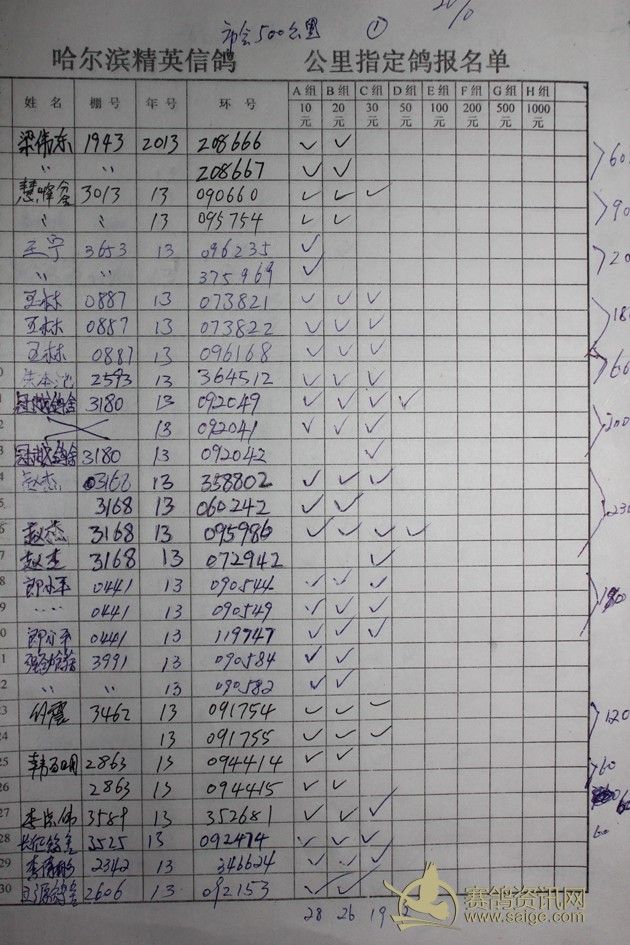 市会500公里 ①
哈尔滨精英信鸽 公里指定鸽报名单
姓名 棚号 年号 环号 A组10元 B组20元 C组30元 D组50元 E组100元 F组200元 G组500元 H组1000元
梁伟东 1943 2013 208666 ✓ ✓
〃 〃 208667 ✓ ✓ 60
3013 13 090660 ✓ ✓ ✓
13 095754 ✓ ✓ 90
王宁 3653 13 096235 ✓
〃 〃 375969 ✓ 20
王林 0887 13 073821 ✓ ✓ ✓
王林 0887 13 073822 ✓ ✓ ✓ 180
王林 0887 13 096168 ✓ ✓ ✓
2593 13 364512 ✓ ✓ ✓ 60
3180 13 092049 ✓ ✓ ✓ ✓
13 092041 ✓ ✓ ✓
3180 13 092042 ✓
赵杰 3168 13 358802 ✓ ✓ ✓
3168 13 060242 ✓ ✓
赵杰 3168 13 095986 ✓ ✓ ✓ ✓
赵杰 3168 13 072942 ✓
18 郎小平 0441 13 090544 ✓ ✓ ✓
19 〃 0441 13 090549 ✓ ✓ ✓
郎小平 0441 13 119747 ✓ ✓ ✓
3991 13 090584 ✓ ✓
〃 〃 13 090582 ✓ ✓
23 3462 13 091754 ✓ ✓ ✓
24 13 091755 ✓ ✓ ✓ 120
25 2863 13 094414 ✓ ✓
26 2863 13 094415 ✓ ✓ 60
27 3589 13 352681 ✓ ✓ ✓
28 3525 13 092474 ✓ ✓ ✓ 60
29 2342 13 346624 ✓ ✓ ✓
30 2606 13 092153 ✓ ✓
28 26 19
赛鸽资讯网
www.saige.com